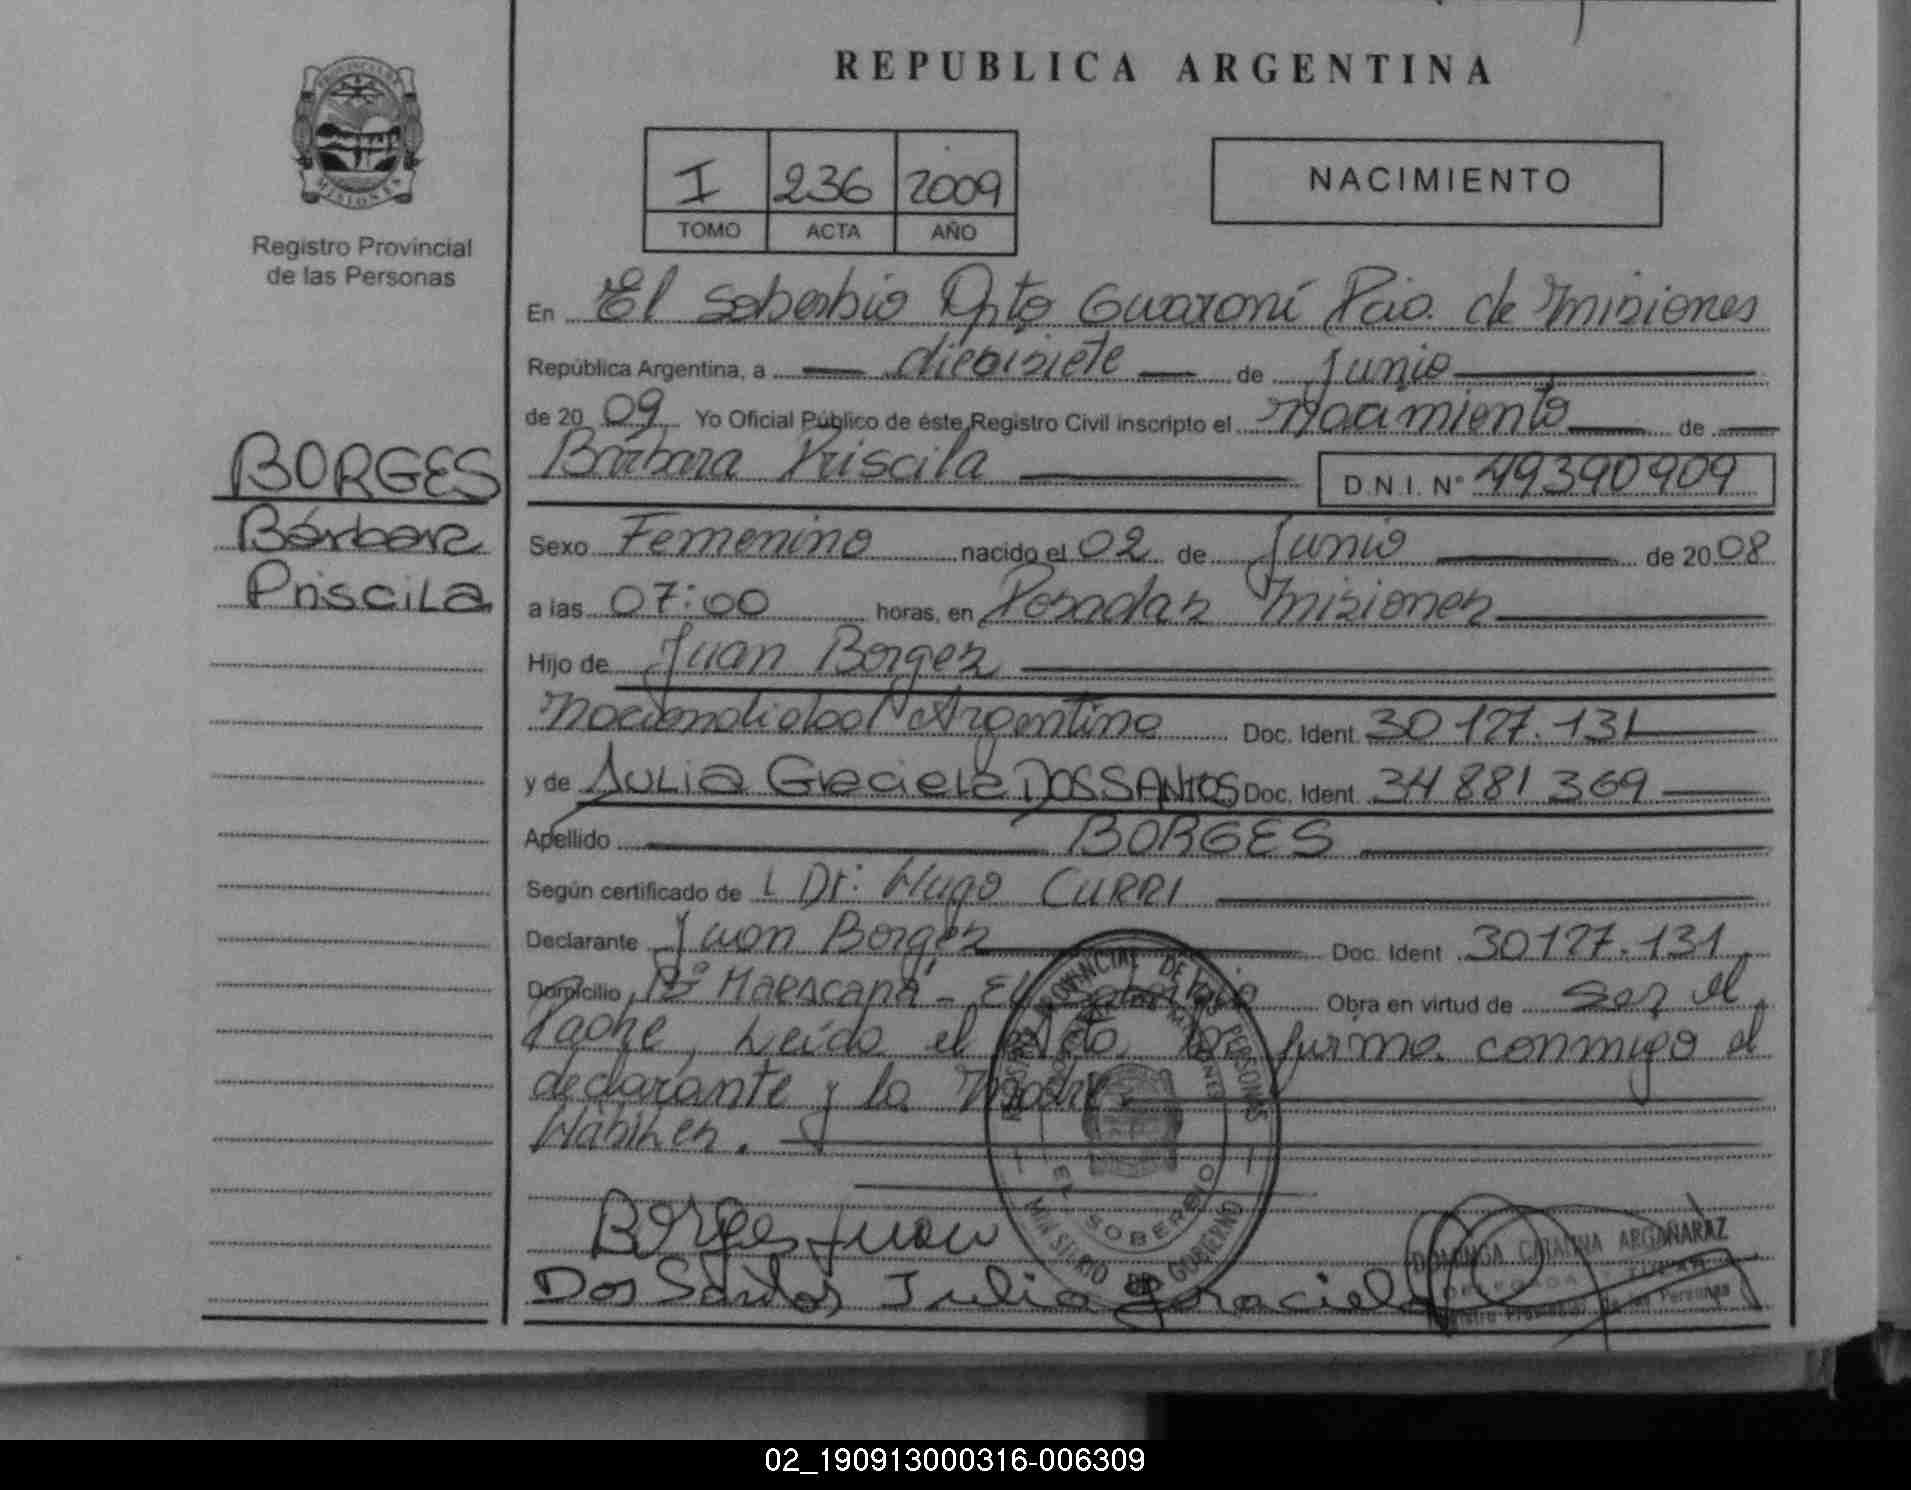 REPUBLICA ARGENTINA
PROVINCIA DE MISIONES
Registro Provincial
de las Personas
I 236 2009
TOMO ACTA AÑO
NACIMIENTO
BORGES
Bárbara
Priscila
En El Soberbio Dpto Guaraní Pcia. de Misiones
República Argentina, a diecisiete de Junio
de 20 09 Yo Oficial Público de éste Registro Civil inscripto el Nacimiento de
Bárbara Priscila D.N.I. Nº 49390909
Sexo Femenino nacido el 02 de Junio de 20 08
a las 07:00 horas, en Posadas Misiones
Hijo de Juan Borges
Nacionalidad Argentino Doc. Ident. 30 127.131
y de Julia Graciela DOS SANTOS Doc. Ident. 34 881 369
Apellido BORGES
Según certificado de L Dr: Hugo CURRI
Declarante Juan Borges Doc. Ident. 30127.131
Domicilio Bº - El Soberbio Obra en virtud de Ser el
Padre, Leída el Acta, la firma conmigo el
declarante y la Madre.
Borges Juan
Dos Santos Julia graciela
REGISTRO PROVINCIAL DE LAS PERSONAS
MISIONES
EL SOBERBIO
MINISTERIO DE GOBIERNO
DOMINGA CATALINA ARGAÑARAZ
Registro Provincial de las Personas
02_190913000316-006309